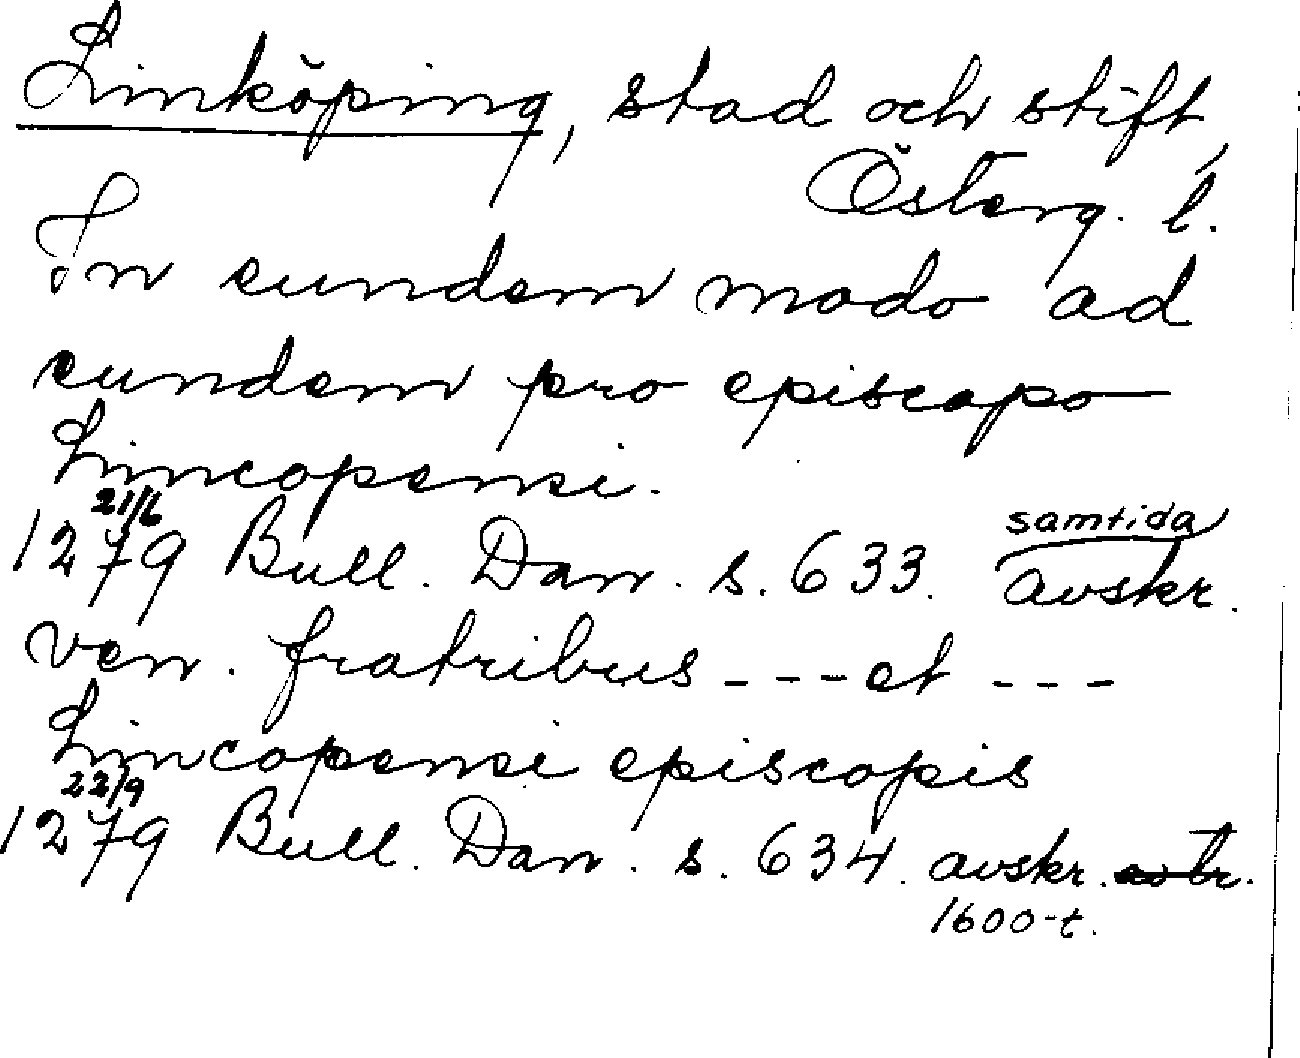 Linköping, stad och stift,
Österg. l.
In eundem modo ad
eundem pro episcopo
Lincopensi.
21/6
1279 Bull. Dan. s. 633. samtida avskr.
ven. fratribus --- et ---
Lincopensi episcopis
22/9
1279 Bull. Dan. s. 634. avskr.
1600-t.